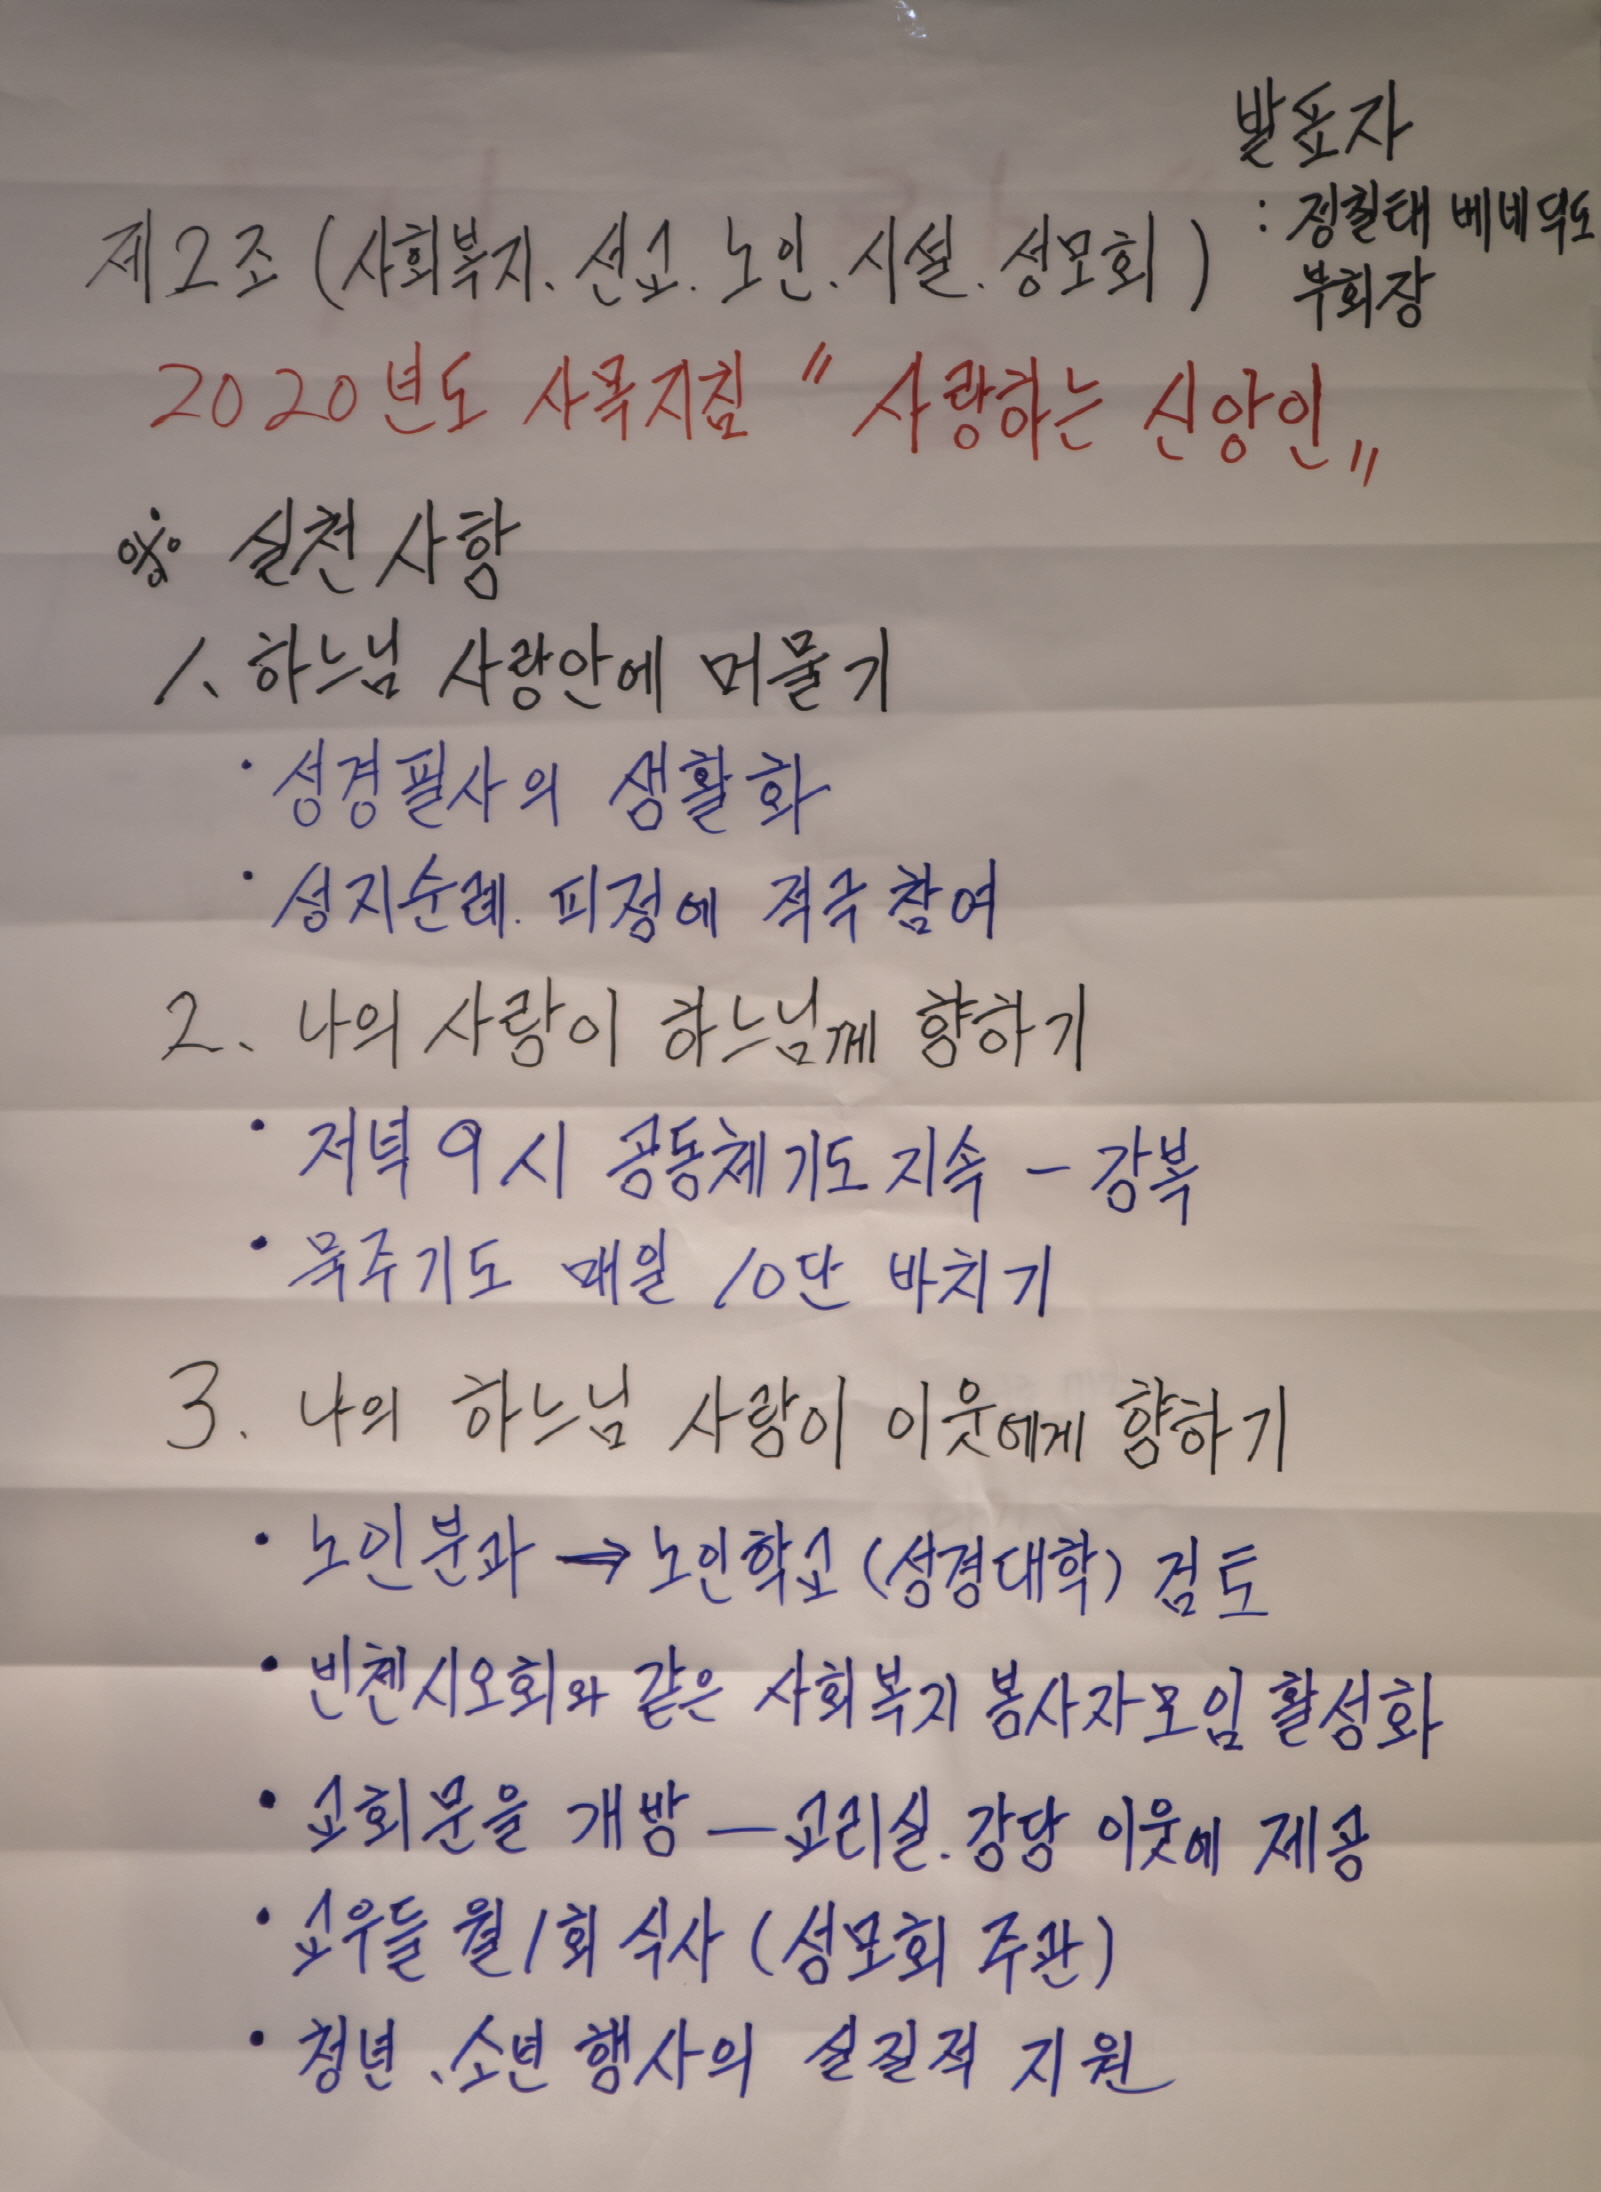 발표자
: 정칠태 베네딕도
부회장
제2조 (사회복지. 선교. 노인. 시설. 성모회)
2020년도 사목지침 " 사랑하는 신앙인 "
※ 실천사항
1. 하느님 사랑안에 머물기
· 성경필사의 생활화
· 성지순례. 피정에 적극 참여
2. 나의 사랑이 하느님께 향하기
· 저녁 9시 공동체 기도 지속 - 강복
· 묵주기도 매일 10단 바치기
3. 나의 하느님 사랑이 이웃에게 향하기
· 노인분과 → 노인학교 (성경대학) 검토
· 빈첸시오회와 같은 사회복지 봉사자모임 활성화
· 교회문을 개방 — 교리실. 강당 이웃에 제공
· 교우들 월1회 식사 (성모회 주관)
· 청년.소년 행사의 실질적 지원